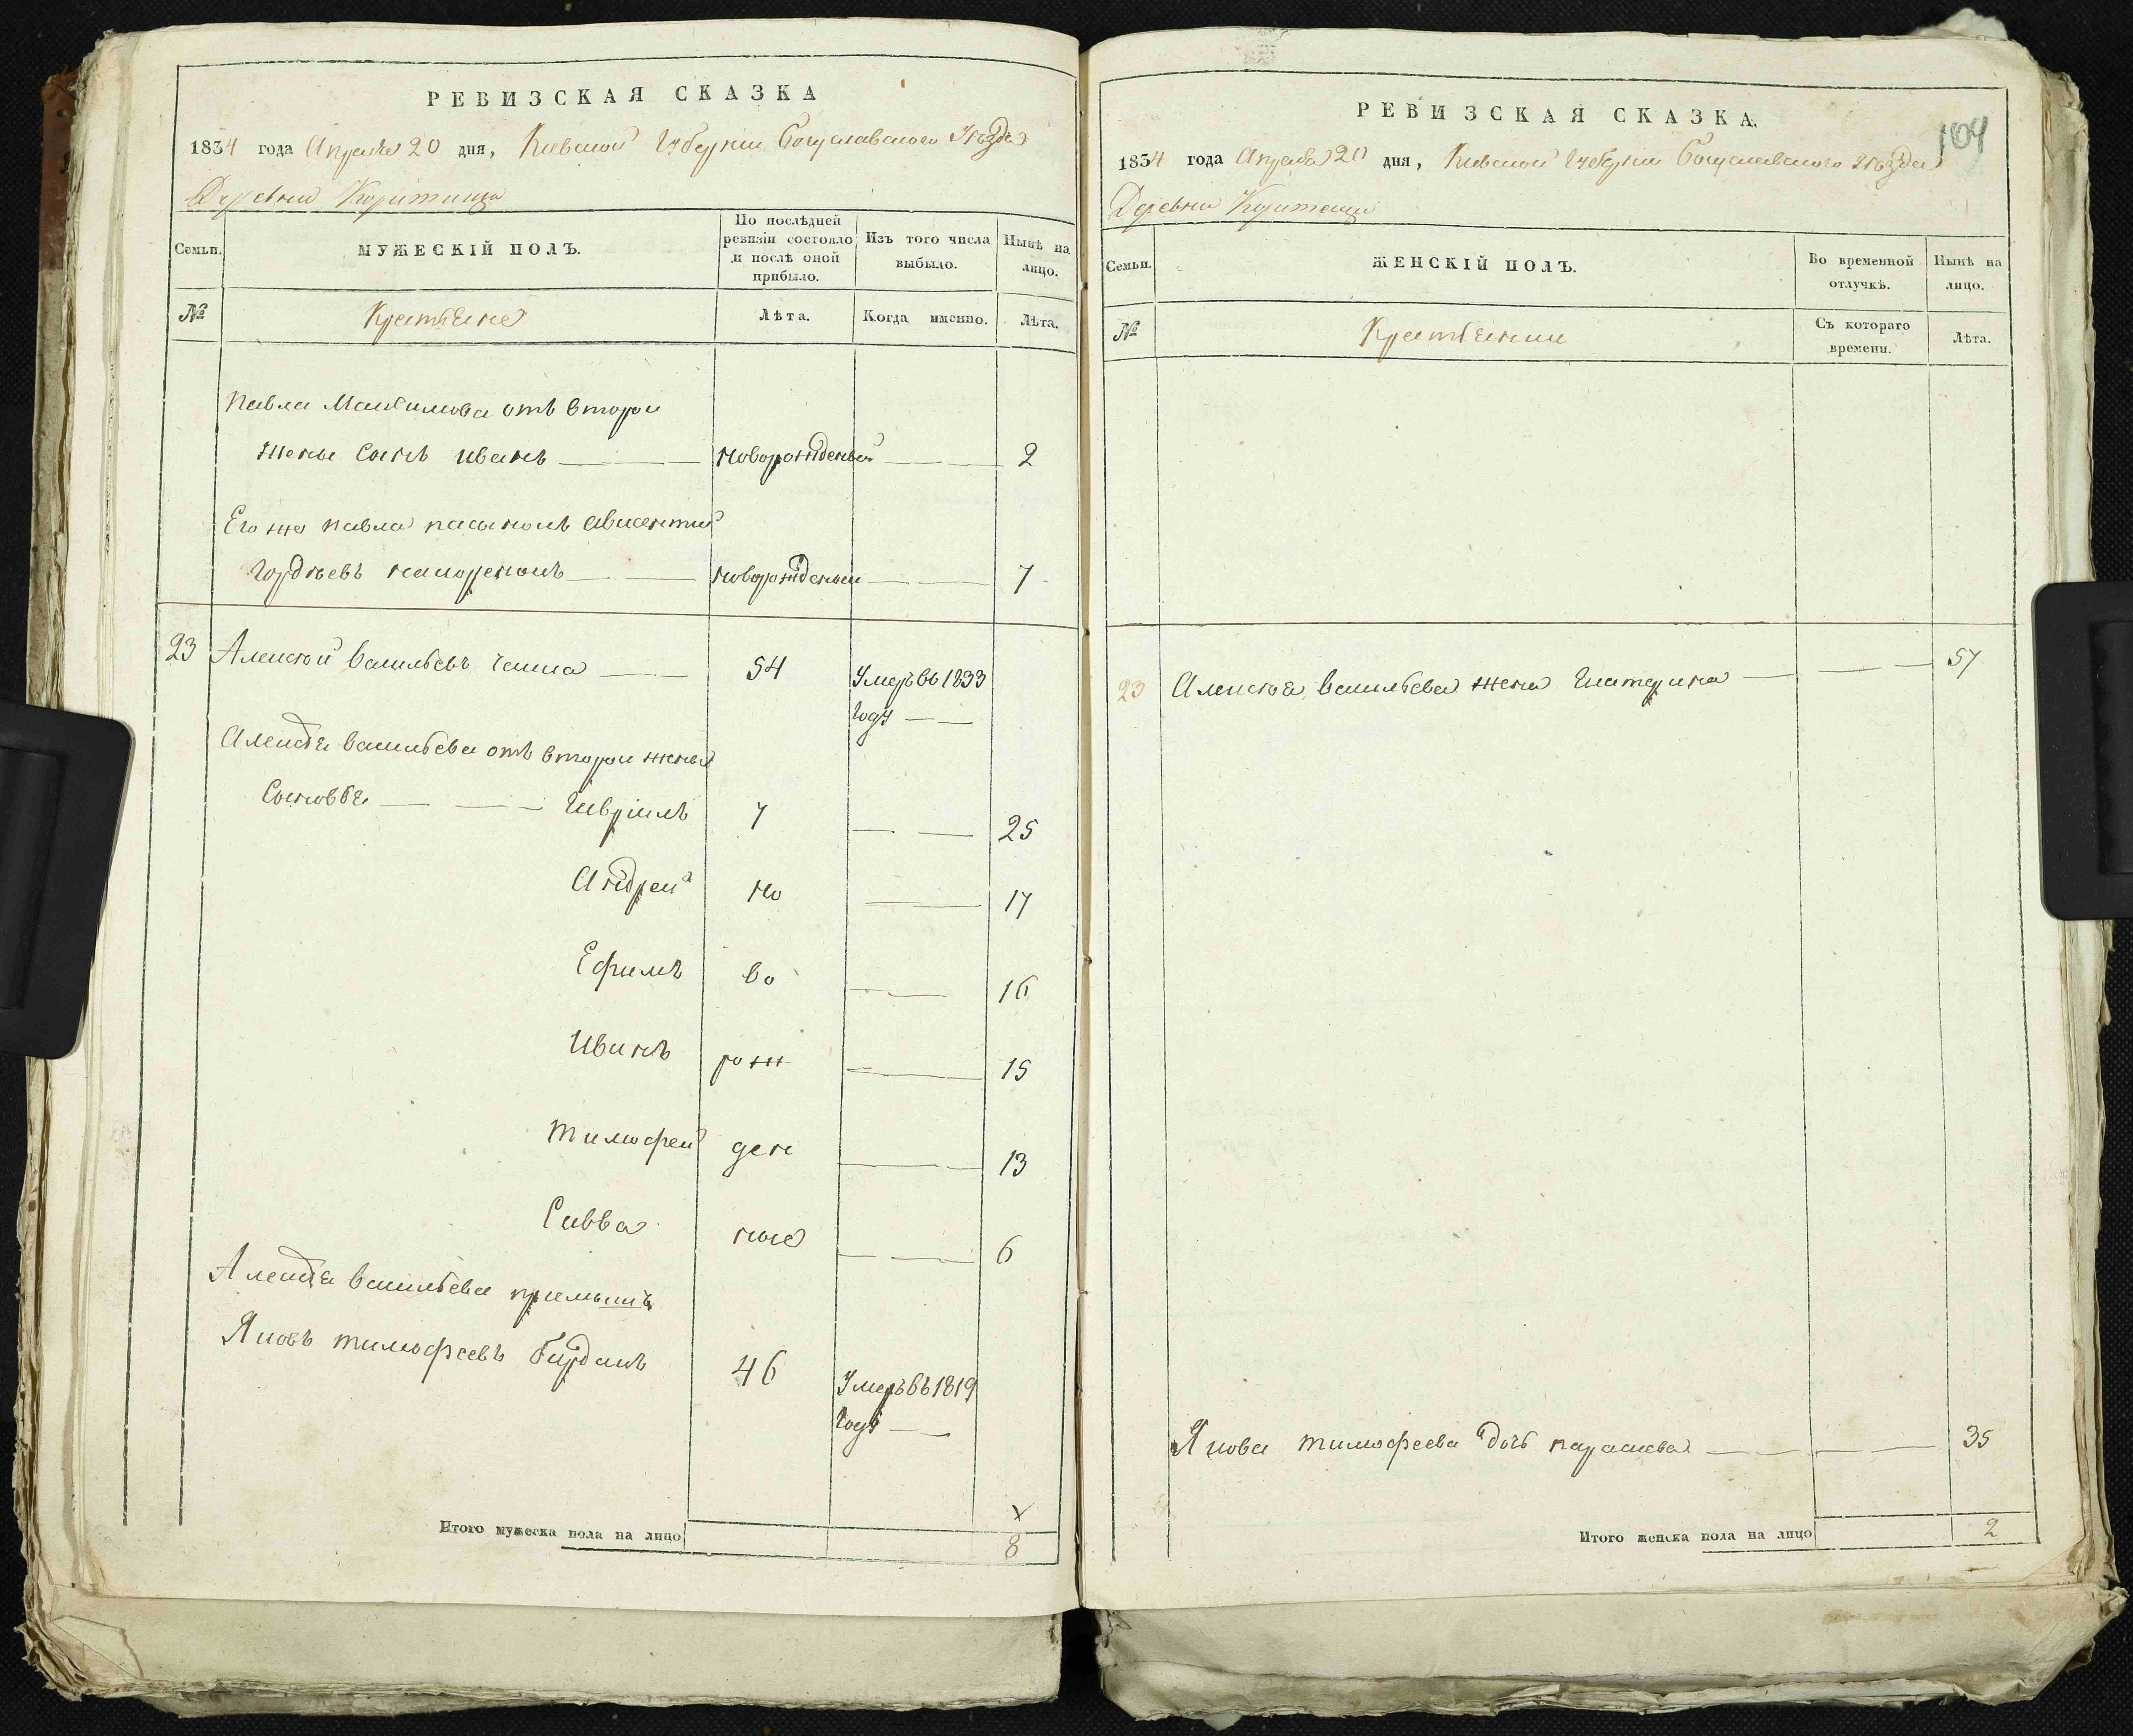 РЕВИЗСКАЯ СКАЗКА
1834 года Апреля 20 дня, Киевской Губернии Богуславского Уезда
Деревни Коритища
Семьи.
МУЖЕСКІЙ ПОЛЪ.
По послѣдней ревизіи состояло и послѣ оной прибыло.
Изъ того числа выбыло.
Нынѣ на лицо.
№
Крестьяне
Лѣта.
Когда именно.
Лѣта.
Павла Максимова отъ второй
жены Сынъ иванъ новорожденый 2
Его же павла пасынокъ Авксентий
Гордѣевъ новорожденый 7
23 Алексѣй васильевъ 54 Умеръ въ 1833
Году
Алексѣя васильева отъ второй жены
Сыновья Гаврилъ 7 25
Андрей но 17
Ефимъ во 16
Иванъ рож 15
Тимофей ден 13
Савва ные 6
Алексѣя васильева приемышъ
Яковъ тимофѣевъ 46 Умеръ въ 1819
Году
Итого мужеска пола на лицо 8
РЕВИЗСКАЯ СКАЗКА.
104
1834 года Апреля 20 дня, Киевской Губернии Богуславского Уезда
Деревни Коритищи
Семьи.
ЖЕНСКІЙ ПОЛЪ.
Во временной отлучкѣ.
Нынѣ на лицо.
№
Крестьянки
Съ котораго времени.
Лѣта.
23 Алексѣя васильева жена Екатерина 57
Якова тимофеева дочь параскева 35
Итого женска пола на лицо 2